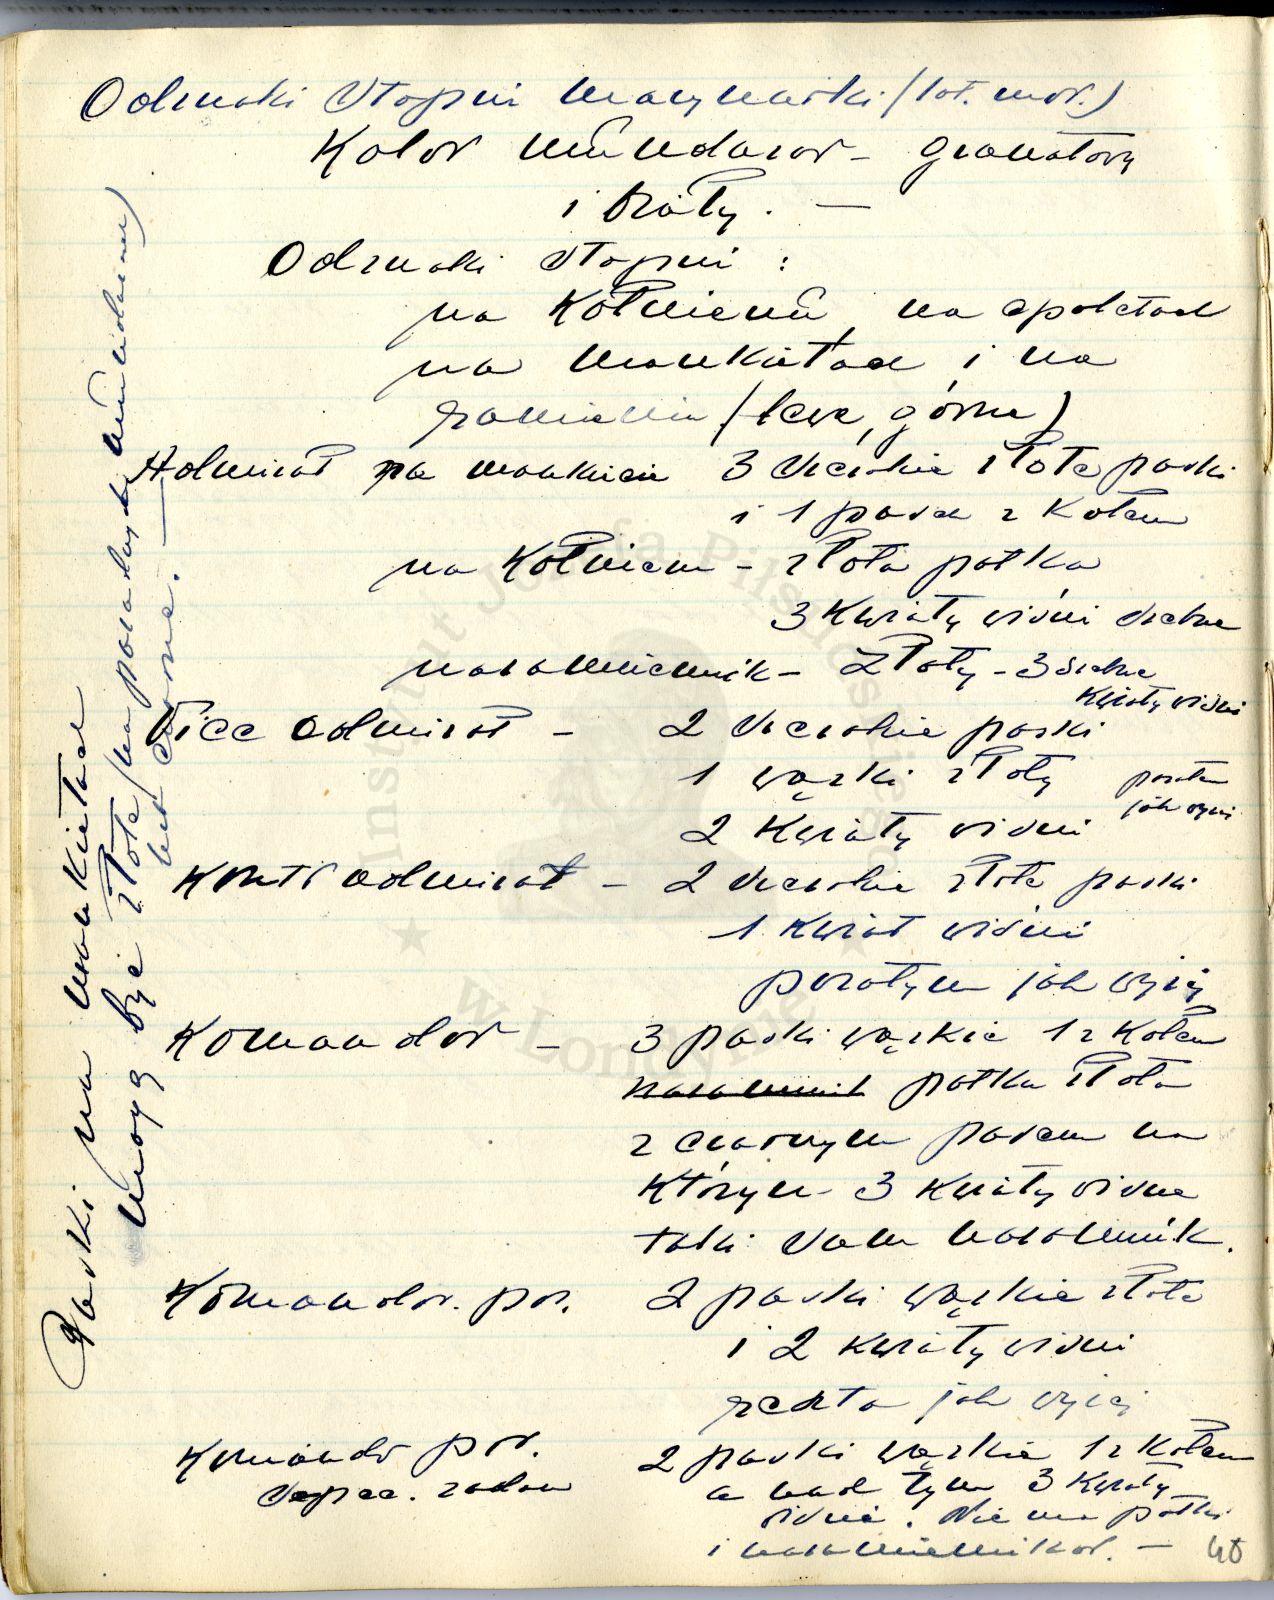 Odznaki stopni marynarki (lot. mor.)
Kolor mundurów – granatowy
i biały. —
Odznaki stopni :
na kołnierzu, na epoletach
na mankietach i na
ramieniu (lewe, górne)
Admirał na mankiecie 3 szerokie złote paski
i 1 pasek z kołem
na kołnierzu – złota patka
3 kwiaty wiśni srebrne
naramiennik – złoty – 3 srebrne
kwiaty wiśni
Vice admirał – 2 szerokie paski
1 wązki złoty poza tem
2 kwiaty wiśni jak wyżej
Kontr admirał – 2 szerokie złote paski
1 kwiat wiśni
pozatym jak wyżej
Komandor – 3 paski wązkie 1 z kołem
naramiennik patka złota
z czarnym pasem na
którym 3 kwiaty wiśni
taki sam naramiennik.
Komandor. por. 2 paski wązkie złote
i 2 kwiaty wiśni
reszta jak wyżej
Komandor por. 2 paski wązkie 1 z kołem
a nad tym 3 kwiaty
wiśni. Nie ma patki
i naramienników. —
40
Paski na mankietach
mogą być złote (na paradnych mundurach)
lub czarne. —
Instytut Józefa Piłsudskiego
w Londynie